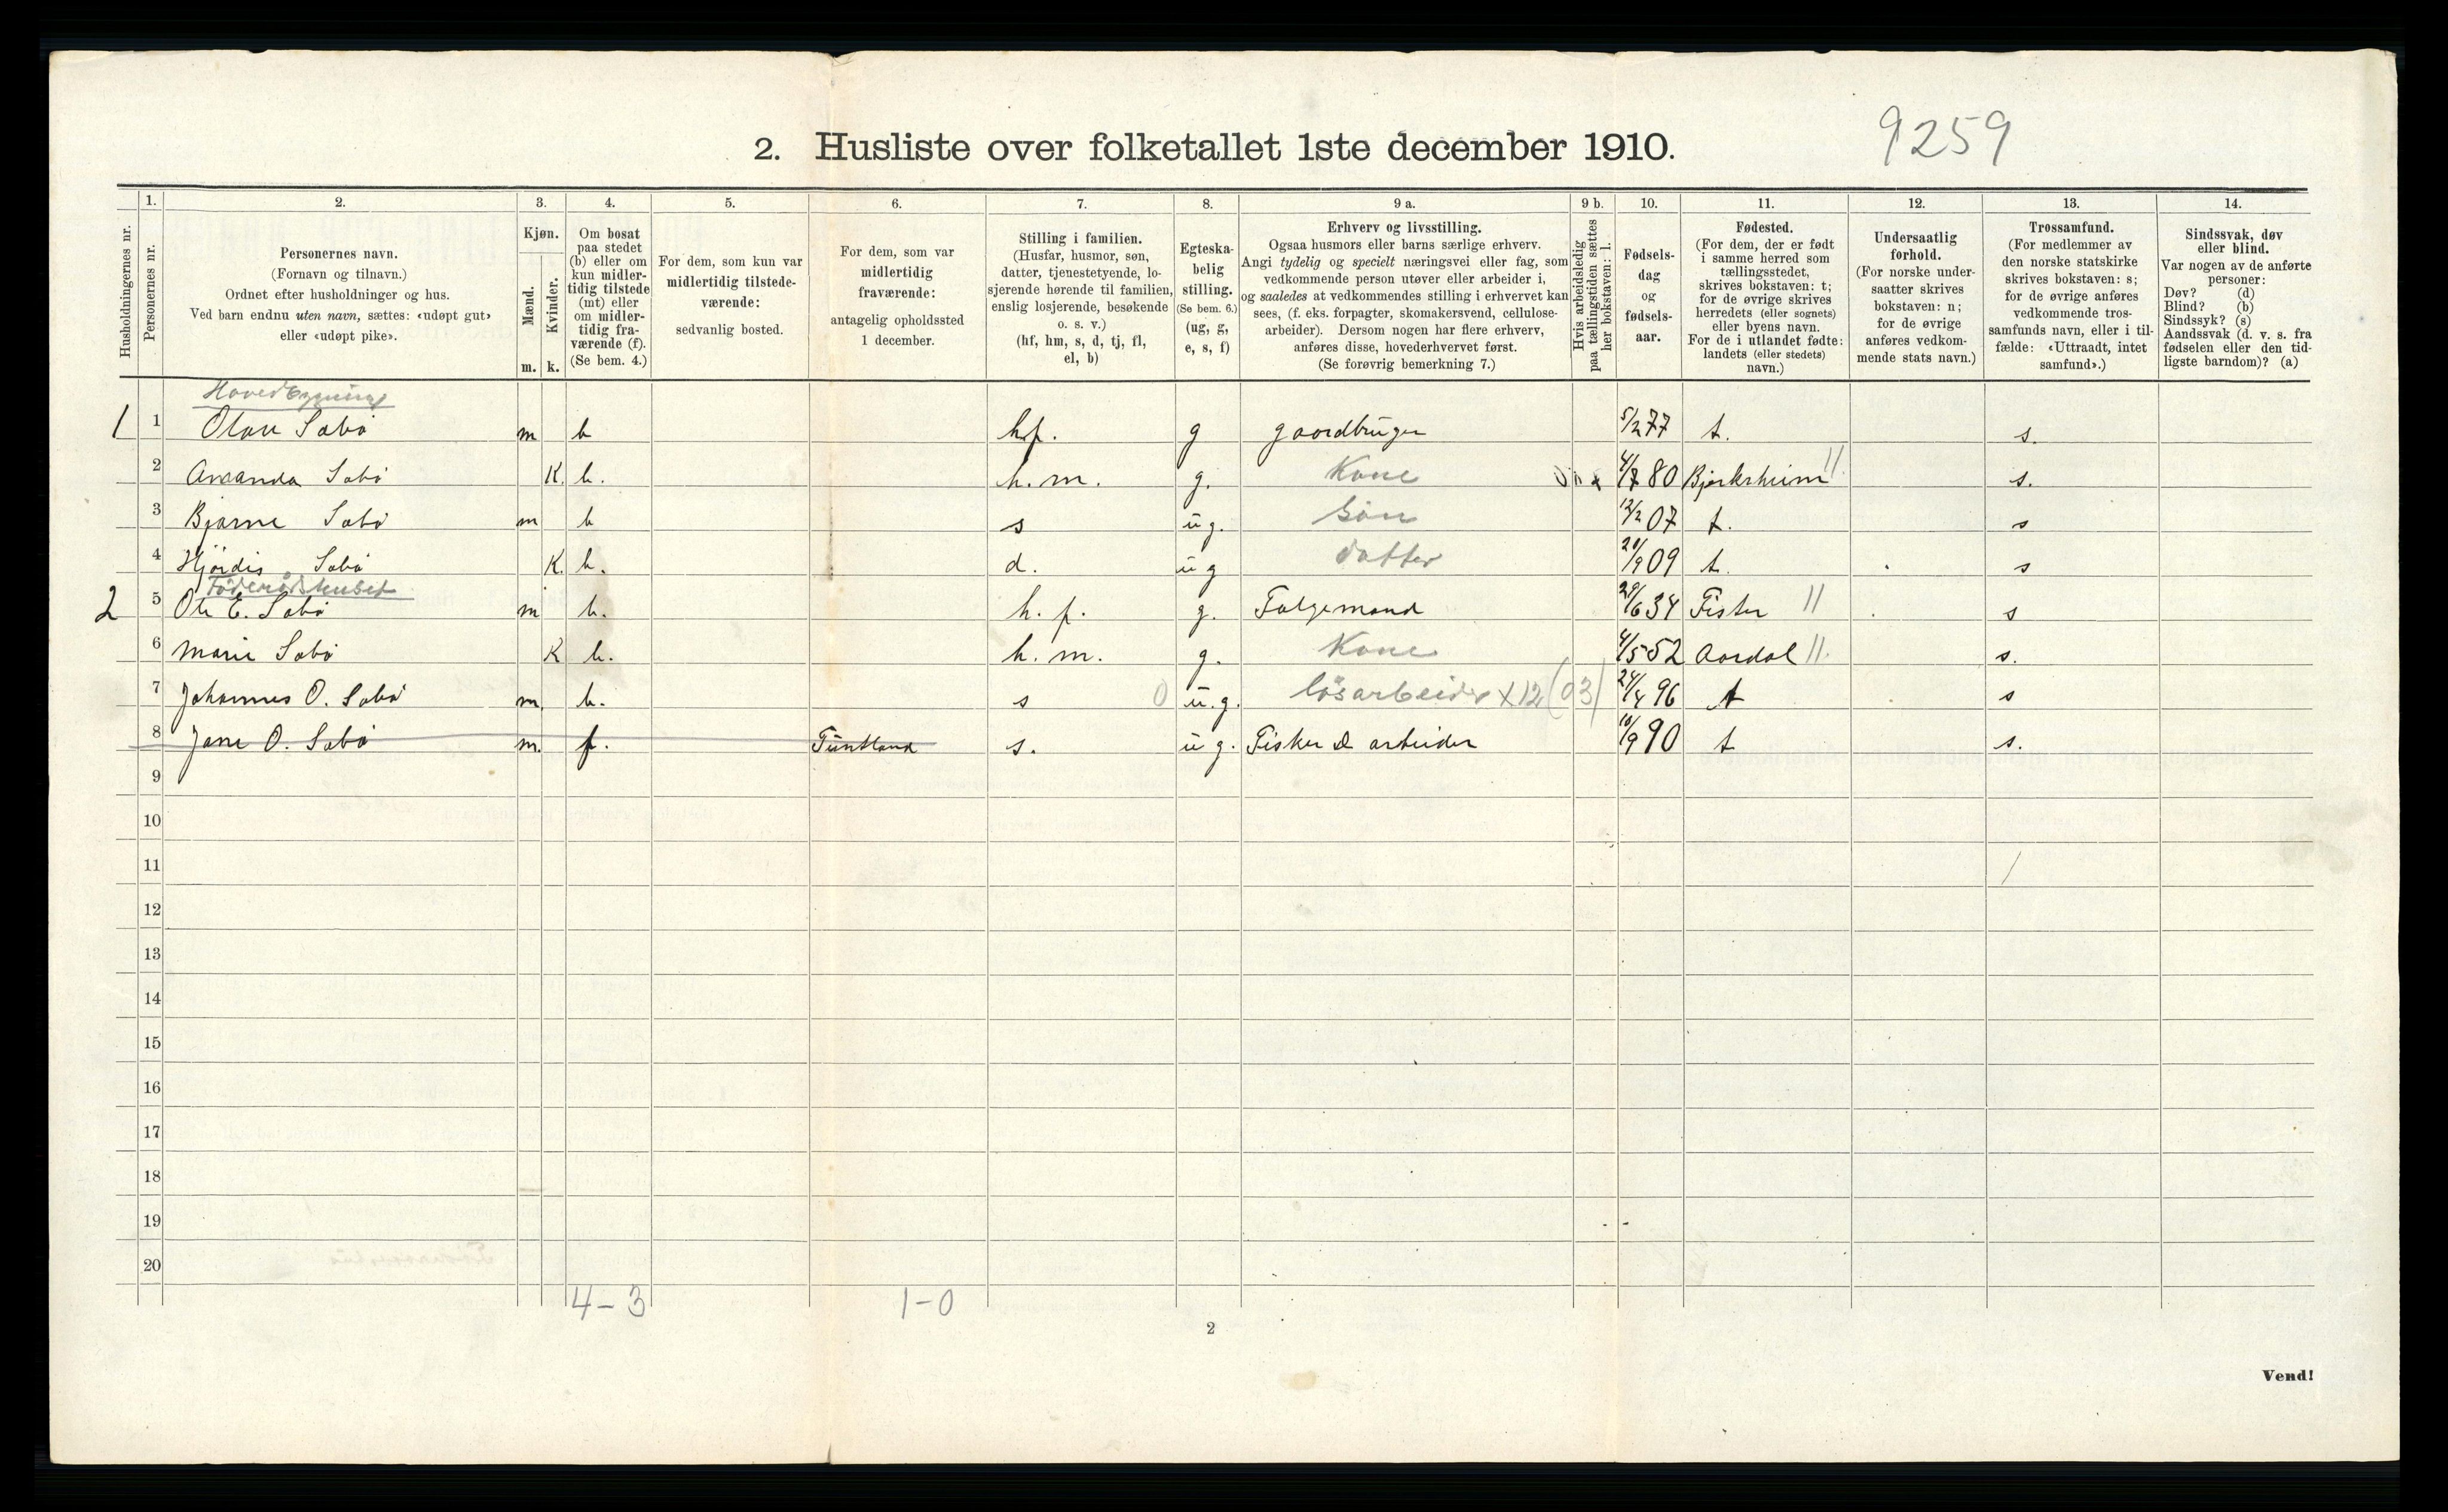 2. Husliste over folketallet 1ste december 1910.
9259
Husholdningernes nr.
1.
Personernes nr.
2.
Personernes navn.
(Fornavn og tilnavn.)
Ordnet efter husholdninger og hus.
Ved barn endnu uten navn, sættes: «udøpt gut»
eller «udøpt pike».
3.
Kjøn.
Mænd.
Kvinder.
m. k.
4.
Om bosat
paa stedet
(b) eller om
kun midler-
tidig tilstede
(mt) eller
om midler-
tidig fra-
værende (f).
(Se bem. 4.)
5.
For dem, som kun var
midlertidig tilstede-
værende:
sedvanlig bosted.
6.
For dem, som var
midlertidig
fraværende:
antagelig opholdssted
1 december.
7.
Stilling i familien.
(Husfar, husmor, søn,
datter, tjenestetyende, lo-
sjerende hørende til familien,
enslig losjerende, besøkende
o. s. v.)
(hf, hm, s, d, tj, fl,
el, b)
8.
Egteska-
belig
stilling.
(Se bem. 6.)
(ug, g,
e, s, f)
9 a.
Erhverv og livsstilling.
Ogsaa husmors eller barns særlige erhverv.
Angi tydelig og specielt næringsvei eller fag, som
vedkommende person utøver eller arbeider i,
og saaledes at vedkommendes stilling i erhvervet kan
sees, (f. eks. forpagter, skomakersvend, cellulose-
arbeider). Dersom nogen har flere erhverv,
anføres disse, hovederhvervet først.
(Se forøvrig bemerkning 7.)
9 b.
Hvis arbeidsledig
paa tællingstiden sættes
her bokstaven: l.
10.
Fødsels-
dag
og
fødsels-
aar.
11.
Fødested.
(For dem, der er født
i samme herred som
tællingsstedet,
skrives bokstaven: t;
for de øvrige skrives
herredets (eller sognets)
eller byens navn.
For de i utlandet fødte:
landets (eller stedets)
navn.)
12.
Undersaatlig
forhold.
(For norske under-
saatter skrives
bokstaven: n;
for de øvrige
anføres vedkom-
mende stats navn.)
13.
Trossamfund.
(For medlemmer av
den norske statskirke
skrives bokstaven: s;
for de øvrige anføres
vedkommende tros-
samfunds navn, eller i til-
fælde: «Uttraadt, intet
samfund».)
14.
Sindssvak, døv
eller blind.
Var nogen av de anførte
personer:
Døv? (d)
Blind? (b)
Sindssyk? (s)
Aandssvak (d. v. s. fra
fødselen eller den tid-
ligste barndom)? (a)
Hovedbygning
1 1 Olau Sabø m b h.f. g gaardbruger 5/2 77 t. s.
2 Amanda Sabø K. b. h. m. g. Kone 80 Bjørkheim 11 s.
3 Bjarne Sabø m b s ug. Søn 12/2 07 t. s
4 Hjørdis Sabø K. b. d. ug datter 20/9 09 t. s
Føderaadshuset
2 5 Ole E. Sabø m b. h. f. g. Folgemand 29/6 34 Fister 11 s
6 Marie Sabø K b. h. m. g. Kone 4/5 52 Aardal 11. s.
7 Johannes O. Sabø m. b. s 0 u.g. løsarbeider x 12 (03) 24/4 96 t s
8 Jane O. Sabø m. f. Tuntland s. ug. Fisker & arbeider 10/9 90 t s.
9
10
11
12
13
14
15
16
17
18
19
20
4-3 1-0
2
Vend!